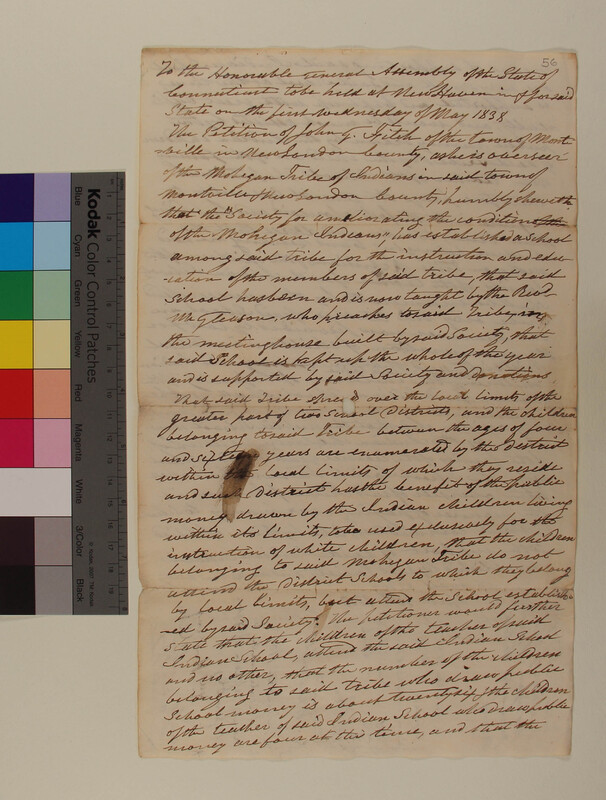 56
To the Honorable General Assembly of the State of
Connecticut to be held at New Haven in & for said
State on the first Wednesday of May 1838
The Petition of John G. Fitch of the town of Mont
ville in New London County, who is overseer
of the Mohegan Tribe of Indians in said town of
Montville & New London County, humbly sheweth
that the "Society for ameliorating the condition
of the Mohegan Indians", has established a School
among said tribe for the instruction and edu
cation of the members of said tribe, that said
School has been and is now taught by the Revd.
Mr. Gleason, who preaches to said Tribe, in
the meetinghouse built by said Society, that
said School is kept up the whole of the year
and is supported by said Society and donations
That said Tribe spre over the local limits of the
greater part of two School Districts, and the children
belonging to said Tribe between the ages of four
and sixteen years are enumerated by the district
within the local limits of which they reside
and such District has the benefit of the public
money drawn by the Indian children living
within its limits, to be used exclusively for the
instruction of white children, that the children
belonging to said Mohegan Tribe do not
attend the District Schools to which they belong
by local limits, but attend the School establish
ed by said Society. The petitioner would further
State that the children of the teacher of said
Indian School, attend the said Indian School
and no other, that the number of the children
belonging to said tribe who draw public
School money is about twenty six, the children
of the teacher of said Indian School who draw public
money are four at this time, and that the
Kodak Color Control Patches
Blue
Cyan
Green
Yellow
Red
Magenta
White
3/Color
Black